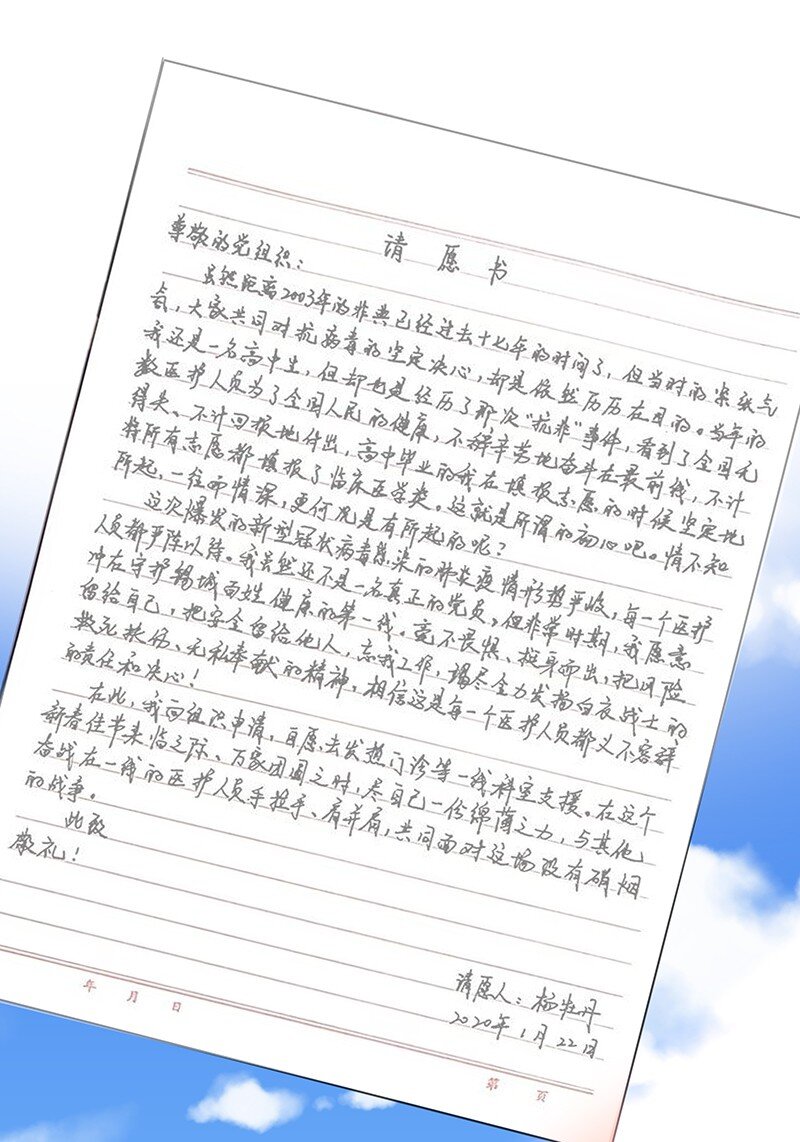 请愿书
尊敬的党组织：
虽然距离2003年的非典已经过去十七年的时间了，但当时的紧张气
氛，大家共同对抗病毒的坚定决心，却是依然历历在目的。当年的
我还是一名高中生，但却也是经历了那次“抗非”事件，看到了全国无
数医护人员为了全国人民的健康，不辞辛劳地奋斗在最前线，不计
得失、不计回报地付出，高中毕业的我在填报志愿的时候坚定地
将所有志愿都填报了临床医学类。这就是所谓的初心吧。情不知
所起，一往而情深，更何况是有所起的呢？
这次爆发的新型冠状病毒感染的肺炎疫情形势严峻，每一个医护
人员都严阵以待。我虽然还不是一名真正的党员，但非常时期，我愿意
冲在守护锡城百姓健康的第一线。毫不畏惧、挺身而出，把风险
留给自己，把安全留给他人，忘我工作，竭尽全力发扬白衣战士的
救死扶伤、无私奉献的精神，相信这是每一个医护人员都义不容辞
的责任和决心！
在此，我向组织申请，自愿去发热门诊等一线科室支援。在这个
新春佳节来临之际、万家团圆之时，尽自己一份绵薄之力，与其他
奋战在一线的医护人员手拉手、肩并肩，共同面对这场没有硝烟
的战争。
此致
敬礼！
请愿人：杨牡丹
2020年1月22日
年 月 日
第 页